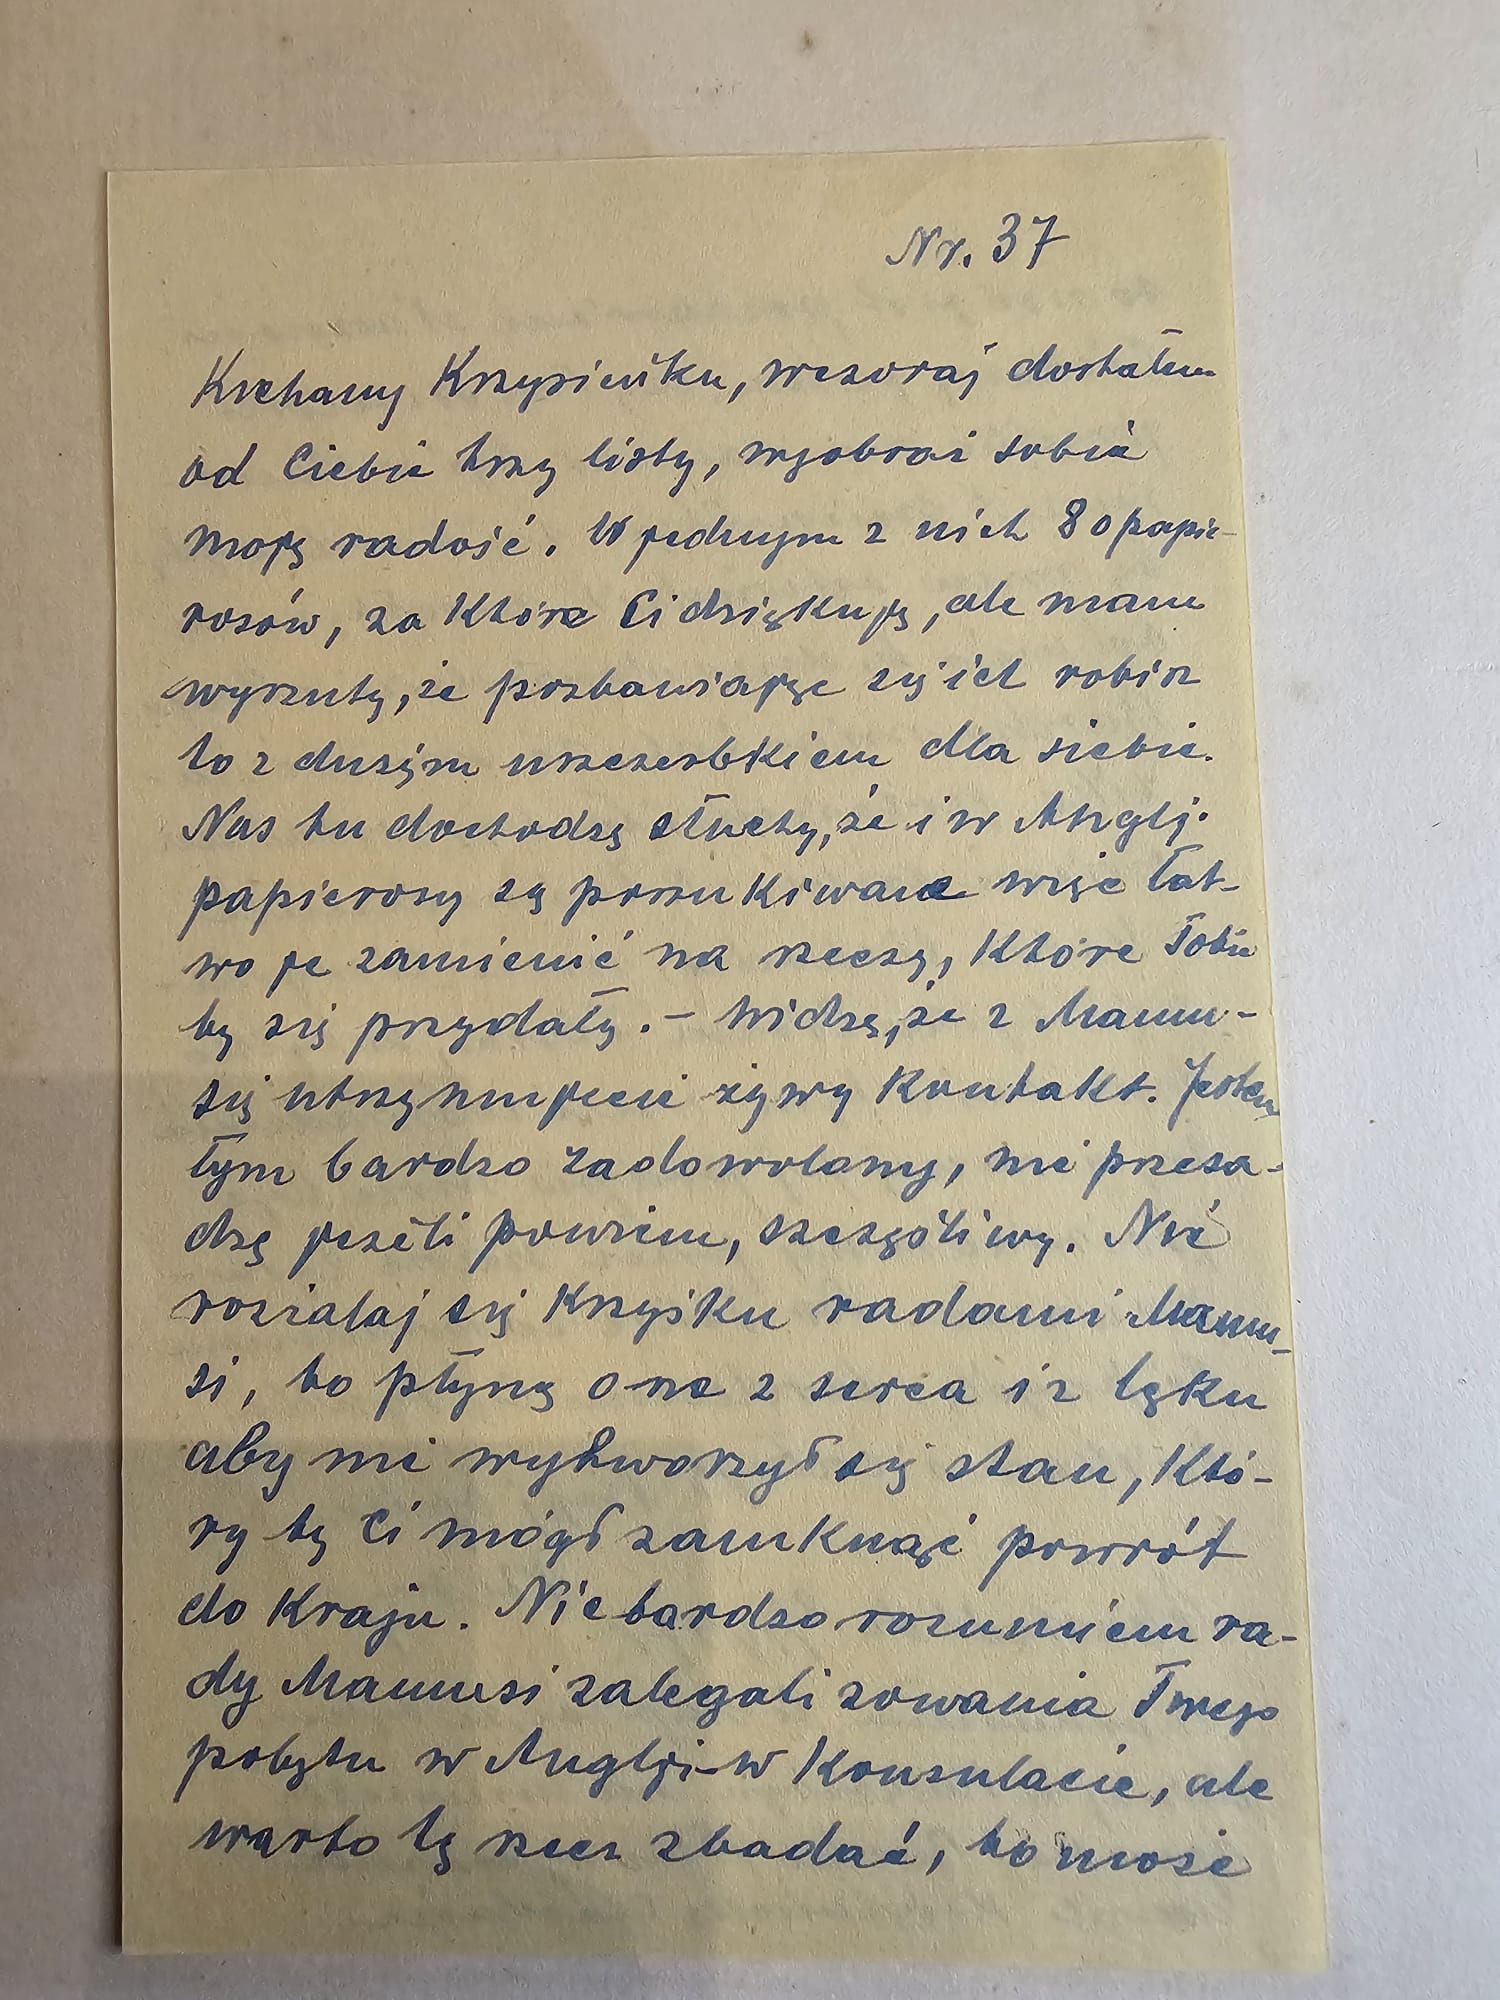 Nr. 37
Kochany Krzysieńku, wczoraj dostałem
od Ciebie trzy listy, wyobraź sobie
moję radość. W jednym z nich 80 papie-
rosów, za które Ci dziękuję, ale mam
wyrzuty, że pozbawiając się ich robisz
to z dużym uszczerbkiem dla siebie.
Nas tu dochodzą słuchy, że i w Anglj.
papierosy są poszukiwane więc łat-
wo je zamienić na rzeczy, które Tobie
by się przydały. – Widzę, że z Mamu-
się utrzymujecie żywy kontakt. Jestem
tym bardzo zadowolony, nie przesa-
dzę jeżeli powiem, szczęśliwy. Nie
rozżalaj się Krzyśku radami Mamu-
si, bo płyną one z serca i z lęku
aby nie wytworzył się stan, któ-
ry by Ci mógł zamknąć powrót
do Kraju. Nie bardzo rozumiem ra-
dy Mamusi zalegalizowania Twego
pobytu w Anglji – w Konsulacie, ale
warto tę rzecz zbadać, bo może